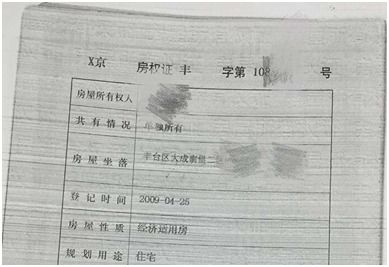 X京 房权证 丰 字第 108 号
房屋所有权人
共有情况 单独所有
房屋坐落 丰台区大成南里二
登记时间 2009-04-25
房屋性质 经济适用房
规划用途 住宅